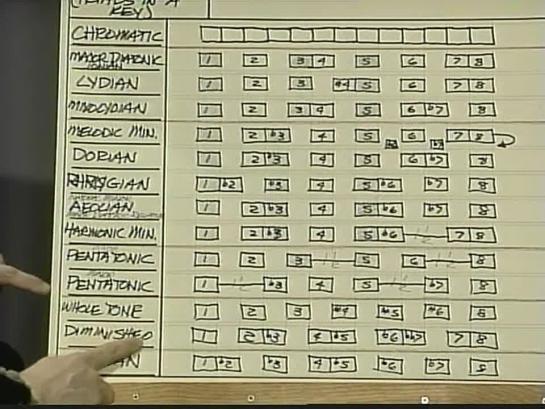 (TRIADS IN A
KEY)
CHROMATIC
MAJOR DIATONIC 1 2 3 4 5 6 7 8
IONIAN
LYDIAN 1 2 3 #4 5 6 7 8
MIXOLYDIAN 1 2 3 4 5 6 b7 8
MELODIC MIN. 1 2 b3 4 5 6 7 8
DORIAN 1 2 b3 4 5 6 b7 8
PHRYGIAN 1 b2 b3 4 5 b6 b7 8
AEOLIAN 1 2 b3 4 5 b6 b7 8
HARMONIC MIN. 1 2 b3 4 5 b6 1½ 7 8
PENTATONIC 1 2 3 1½ 5 6 1½ 8
PENTATONIC 1 1½ b3 4 5 1½ b7 8
WHOLE TONE 1 2 3 #4 #5 #6 8
DIMINISHED 1 2 b3 4 b5 b6 bb7 7 8
1 b2 b3 4 b5 b6 b7 8